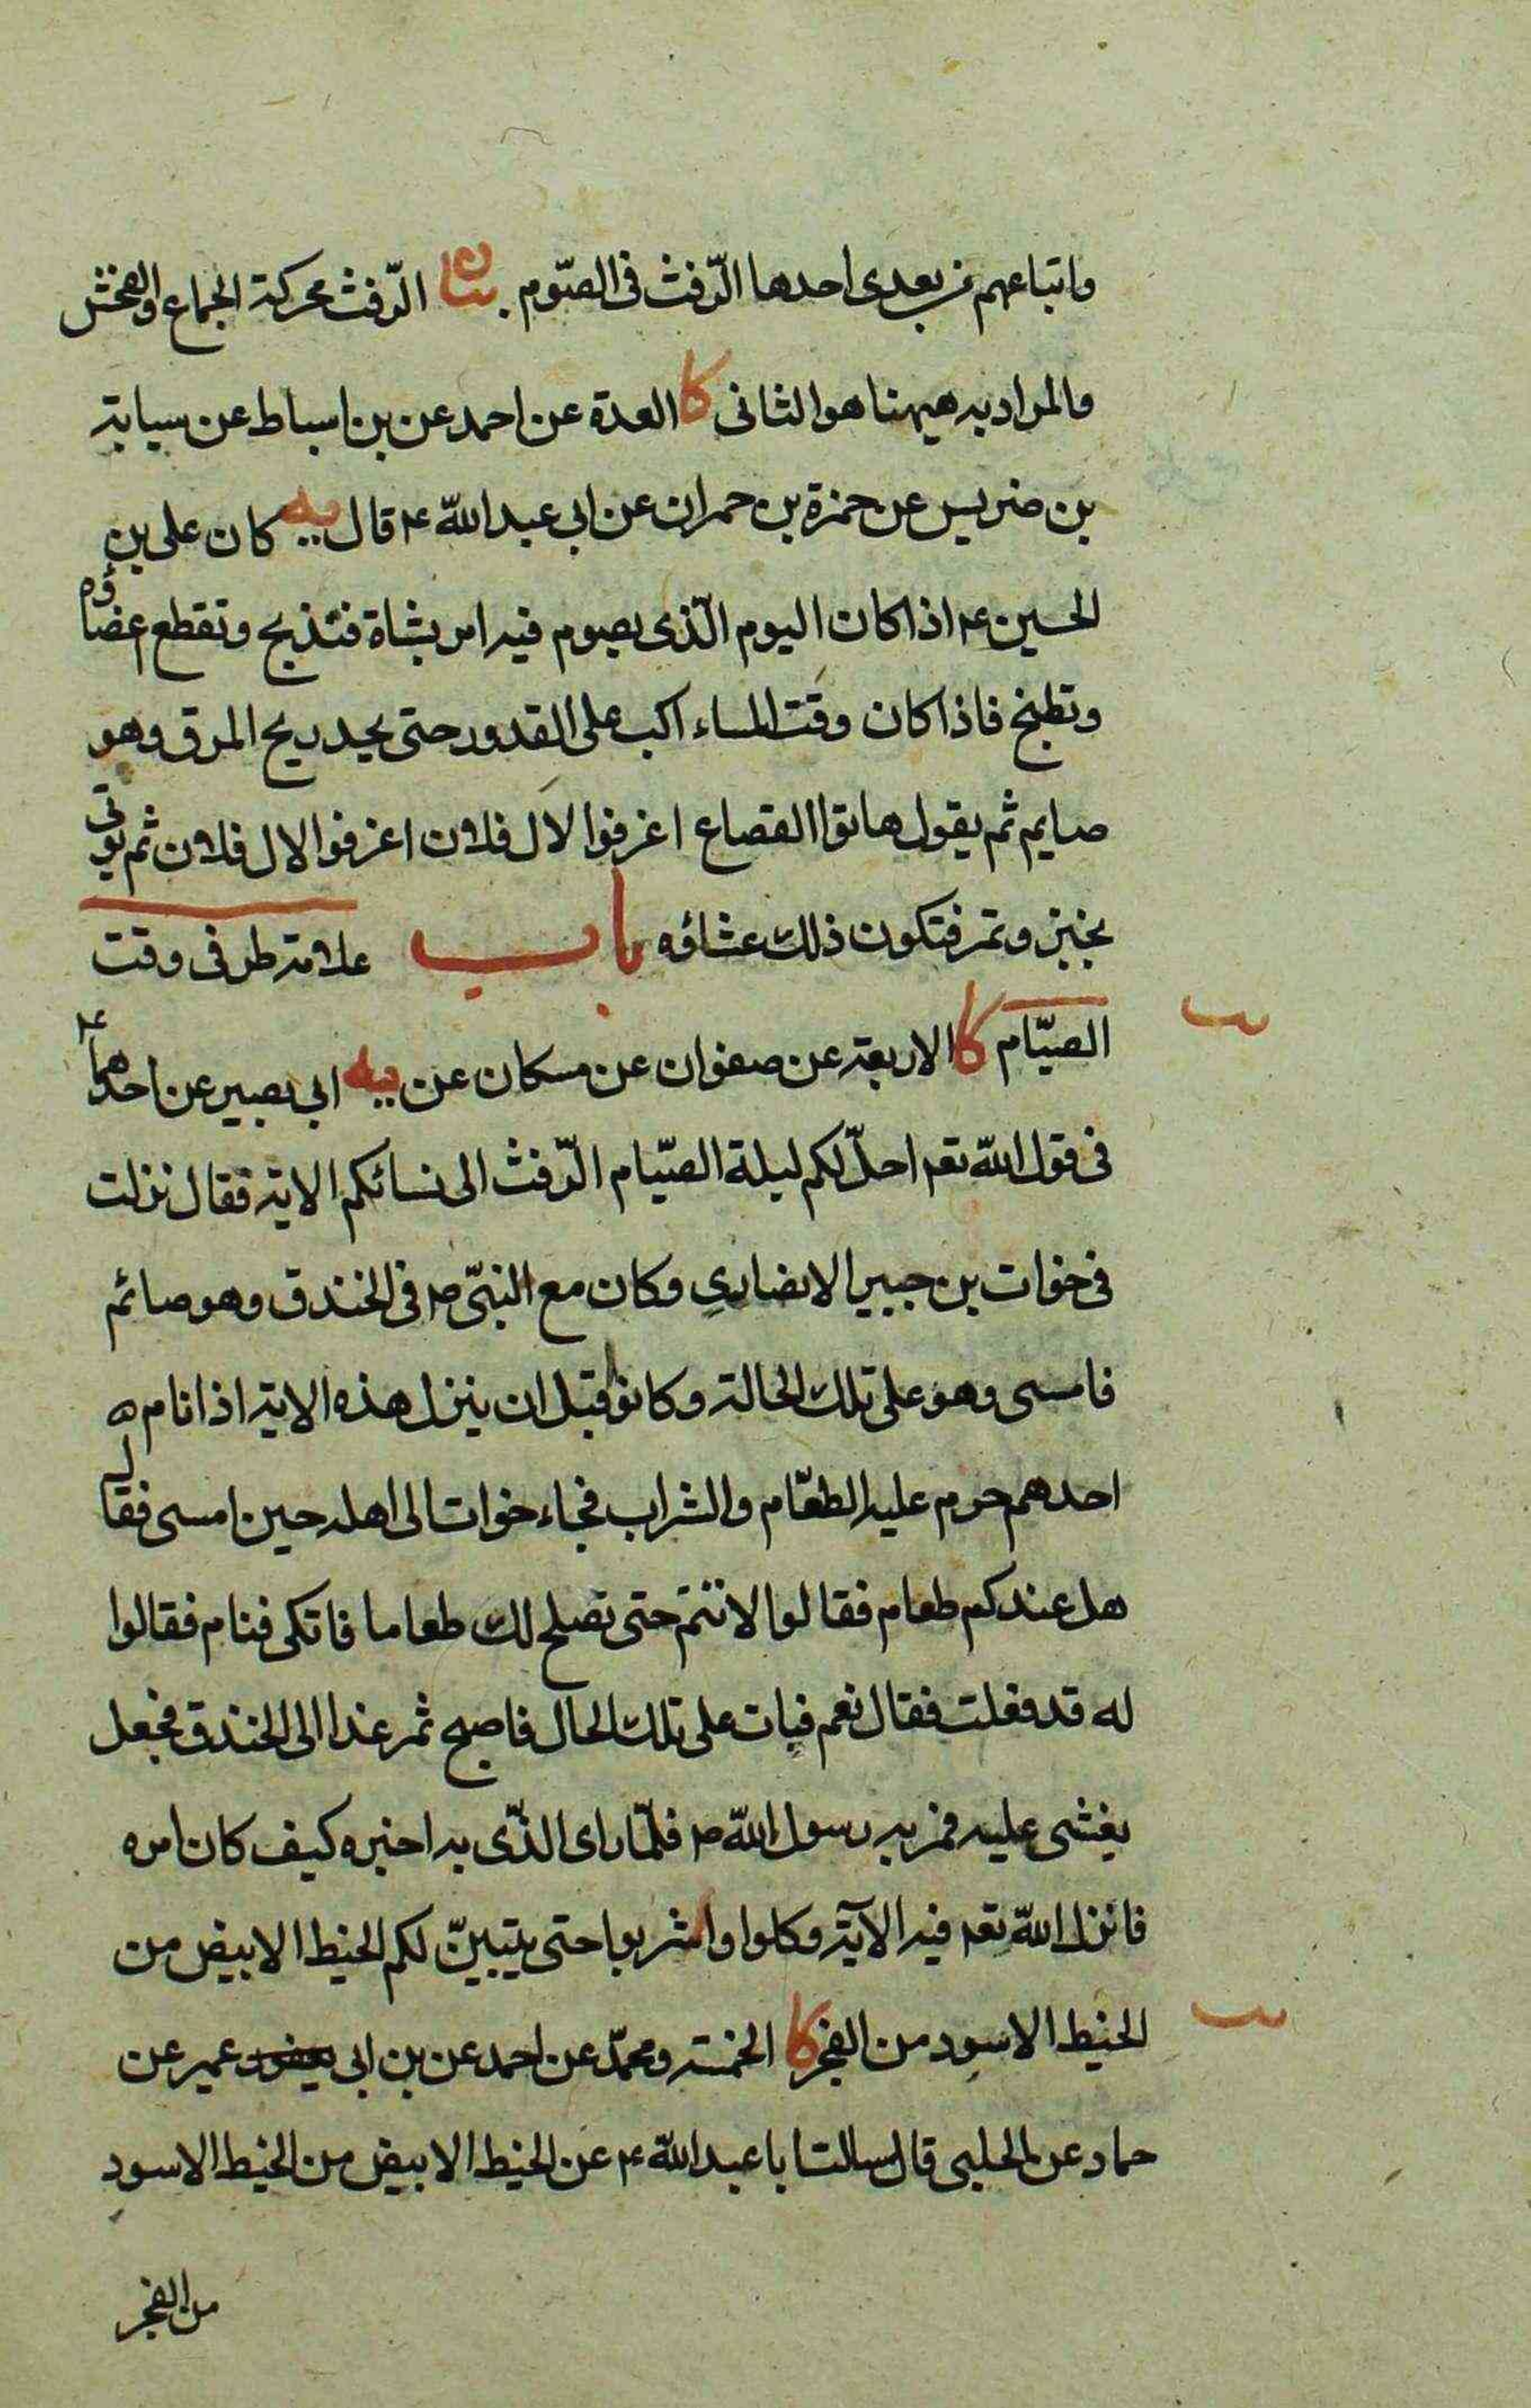 واتباعهم من بعدى احدها الرّفث فى الصّوم بيان الرّفث محركة الجماع والفحش
والمراد به هيهنا هو الثانى كا العدة عن احمد عن بن اسباط عن سيابة
بن ضريس عن حمزة بن حمران عن ابى عبد اللّه ع قال يه كان على بن
الحسين ع اذا كان اليوم الّذى يصوم فيه امر بشاة فتذبح وتقطع اعضاؤه
وتطبخ فاذا كان وقت المساء اكب على القدور حتى يجد ريح المرق وهو
صايم ثم يقول هاتوا القصاع اغرفوا لال فلان اغرفوا الال فلان ثم يؤتى
بخبز وتمر فتكون ذلك عشاؤه باب علامة طرفى وقت
الصيّام كا الاربعة عن صفوان عن مسكان عن يه ابى بصير عن احدهما ع
فى قول اللّه تعه احلّ لكم ليلة الصيّام الرّفث الى نسائكم الاية فقال نزلت
فى خوات بن جبير الانصارى وكان مع النبّى ص فى الخندق وهو صائم
فامسى وهو على تلك الحالة وكانوا قبل ان ينزل هذه الاية اذا نام ه
احدهم حرم عليه الطعّام والشراب فجاء خوات الى اهله حين امسى فقال
هل عندكم طعام فقالوا لا تنم حتى نصلح لك طعاما فاتكى فنام فقالوا
له قد فعلت فقال نعم فبات على تلك الحال فاصبح ثم غدا الى الخندق فجعل
يغشى عليه فمر به رسول اللّه ص فلمّا راى الذّى به اخبره كيف كان امره
فانزل اللّه تعه فيه الآية وكلوا واشربوا حتى يتبينّ لكم الخيط الابيض من
الخيط الاسود من الفجر كا الخمسة ومحمّد عن احمد عن بن ابى عمير عن
حماد عن الحلبى قال سالت ابا عبد اللّه ع عن الخيط الابيض من الخيط الاسود
من الفجر